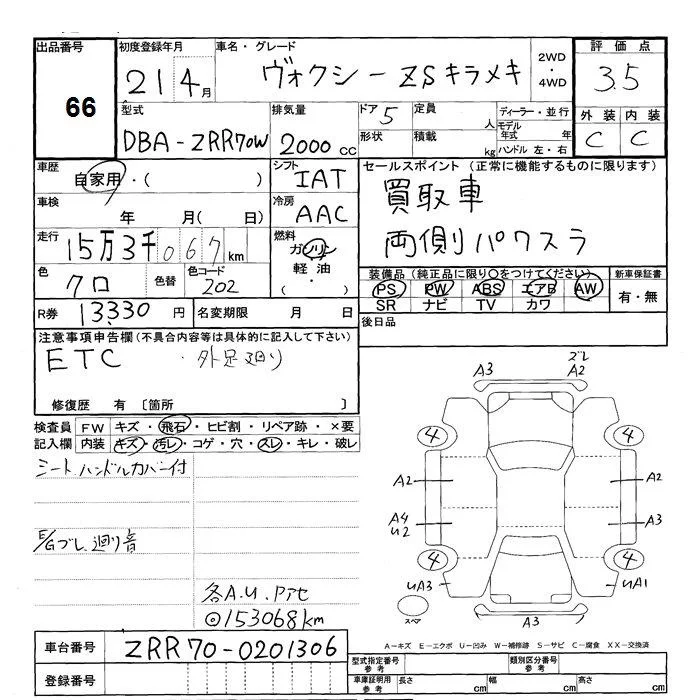 出品番号
66
初度登録年月
21 4月
車名・グレード
ヴォクシー ZSキラメキ
2WD
・
4WD
評価点
3.5
外装 内装
C C
型式
DBA-ZRR70W
排気量
2000 CC
ドア 5
形状
定員 人
積載 kg
ディーラー・並行
モデル年式 年
ハンドル 左・右
車歴
自家用・( )
シフト
IAT
車検
年 月( 日)
冷房
AAC
走行
15万3千067km
燃料
ガソリン
軽油
( ・ )
色
クロ
色替
色コード
202
R券 13,330円
名変期限 月 日
セールスポイント(正常に機能するものに限ります)
買取車
両側パワスラ
装備品(純正品に限り○をつけてください)
PS PW ABS エアB AW
SR ナビ TV カワ
新車保証書
有・無
後日品
注意事項申告欄(不具合内容等は具体的に記入して下さい)
ETC ・外足廻り
修復歴 有 〔箇所 〕
検査員 FW キズ・飛石・ヒビ割・リペア跡・×要
記入欄 内装 キズ・汚レ・コゲ・穴・スレ・キレ・破レ
シート、ハンドルカバー付
廻り音
各A.U.Pアセ
◎153068km
A3 ズレ
A2
4 4
A2 A2
A4
U2
A3
4 4
UA3 UA1
スペア
A3
A-キズ E-エクボ U-凹み W-補修跡 S-サビ C-腐食 XX-交換済
車台番号 ZRR70-0201306
登録番号
型式指定番号
参考
類別区分番号
参考
車庫証明用
参考
長さ cm
幅 cm
高さ cm